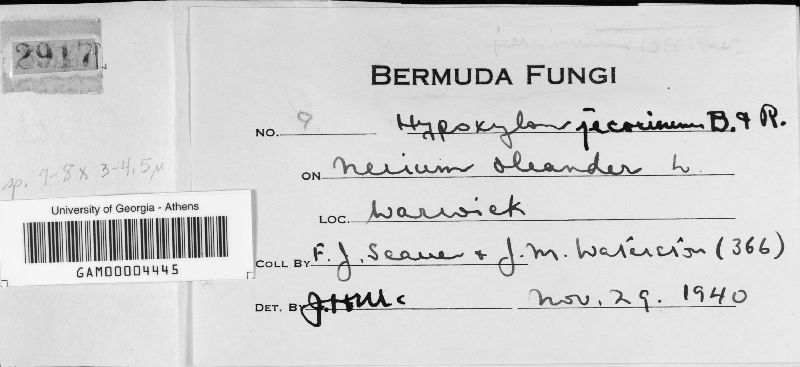 2917
BERMUDA FUNGI
NO. 9 Hypoxylon jecorinum B. & R.
ON Nerium Oleander L.
LOC. Warwick
COLL BY F. J. Seaver & J. M. Waterston (366)
DET. BY J.H.M. Nov. 29. 1940
sp. 7-8 x 3-4.5 µ
University of Georgia - Athens
GAM00004445